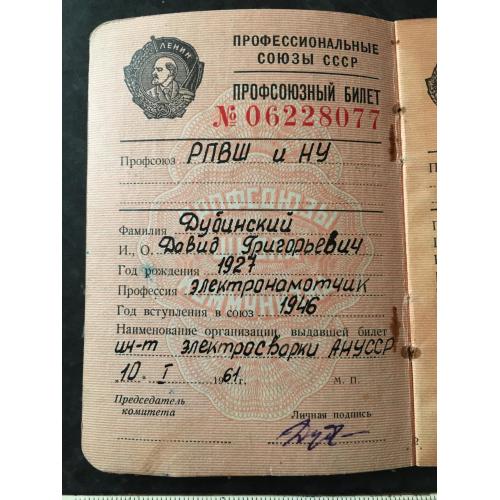 ЛЕНИН
ПРОФЕССИОНАЛЬНЫЕ
СОЮЗЫ СССР
ПРОФСОЮЗНЫЙ БИЛЕТ
№ 06228077
Профсоюз РПВШ и НУ
Фамилия Дубинский
И., О. Давид Григорьевич
Год рождения 1927
Профессия электронамотчик
Год вступления в союз 1946
Наименование организации, выдавшей билет
ин-т электросварки АНУССР
10. I 1961 г. М. П.
Председатель
комитета
Личная подпись